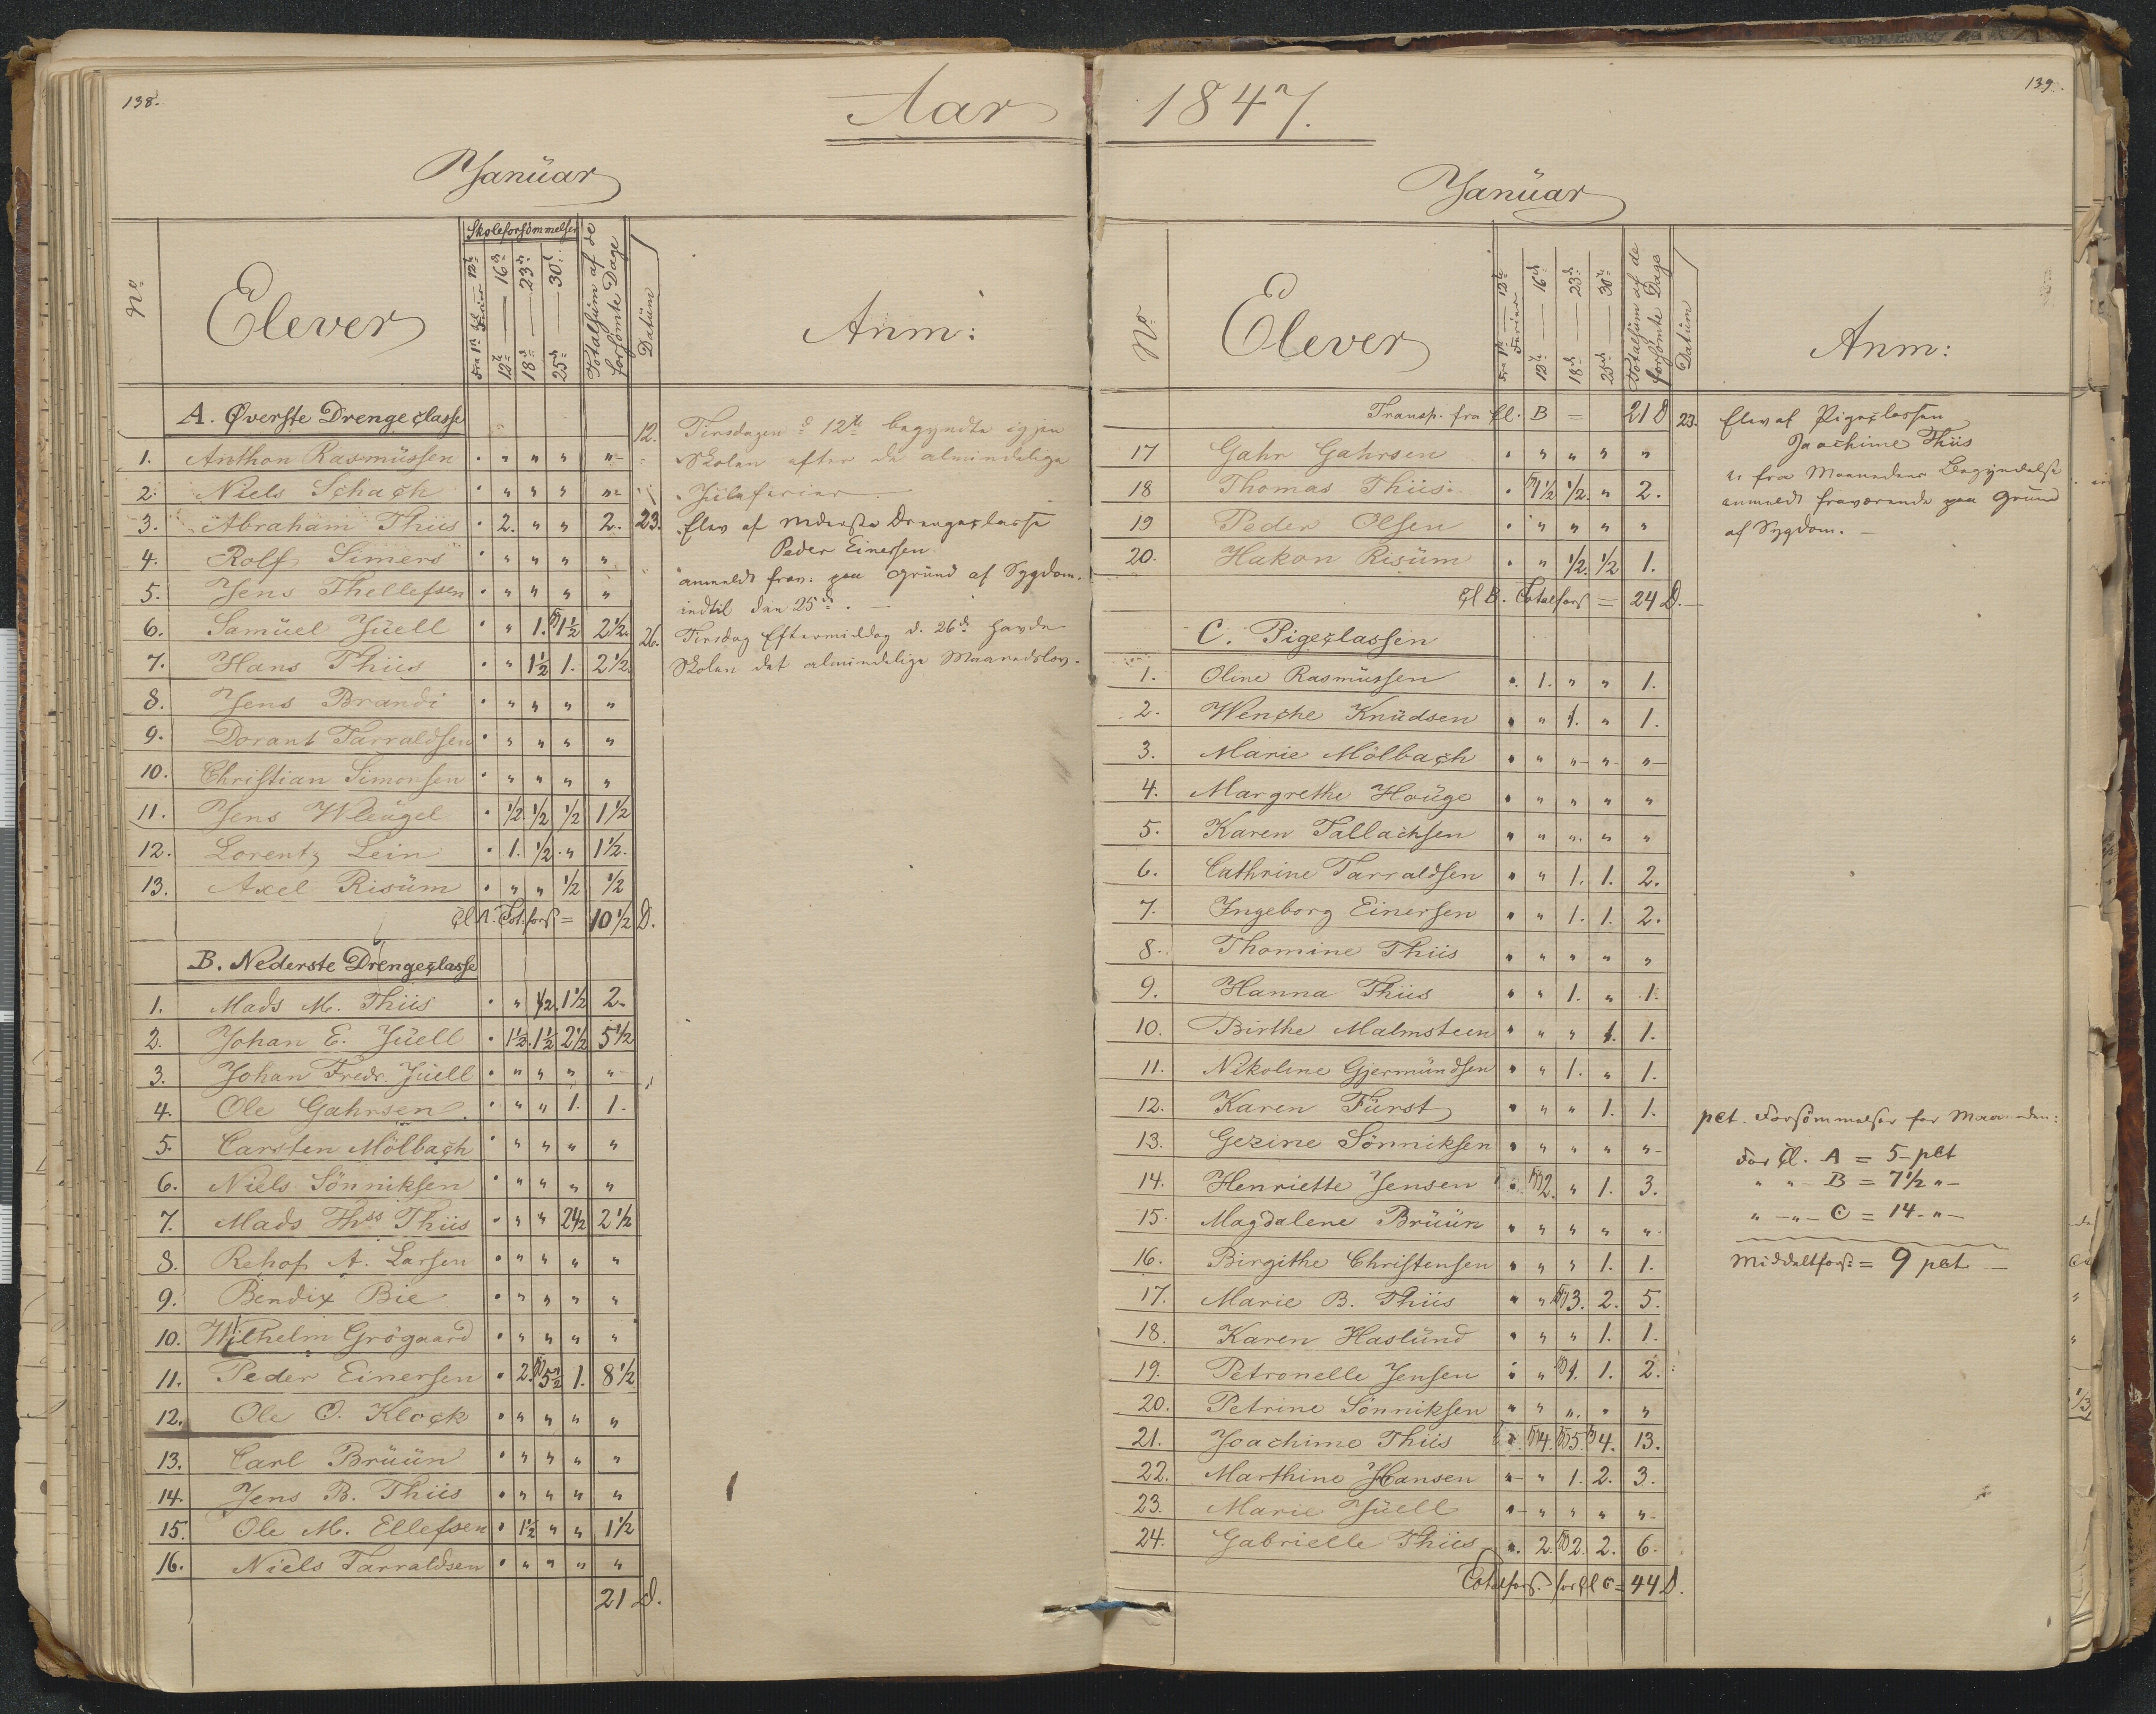 138.
Aar
Januar
No
Elever
Skoleforsömmelser
Fra 1ste — 12te Ferier
12te — 16de
18de — 23de
25de — 30te
Totalsum af de forsömte Dage
Datum
Anm:
A. Øverste Drengeclasse
1. Anthon Rasmussen . " " " "
2. Niels Schach . " " " "
3. Abraham Thiis . 2. " " 2.
4. Rolf Simers . " " " "
5. Jens Thellefsen . " " " "
6. Samuel Juell . " 1. 1½ 2½.
7. Hans Thiis . " 1½ 1. 2½
8. Jens Brandi . " " " "
9. Dorant Tarraldsen . " " " "
10. Christian Simonsen . " " " "
11. Jens Wleugel . ½ ½ ½ 1½
12. Lorentz Lein . 1. ½. " 1½.
13. Axel Risum . " " ½ ½
Cl A. Tot.fors = 10½ D.
B. Nederste Drengeclasse
1. Mads M. Thiis . " ½. 1½ 2.
2. Johan E. Juell . 1½. 1½ 2½ 5½
3. Johan Fredr. Juell . " " " "
4. Ole Gahrsen . " " 1. 1.
5. Carsten Mölbach . " " " "
6. Niels Sönniksen . " " " "
7. Mads Thss Thiis . " " 2½ 2½
8. Rehof A. Larsen . " " " "
9. Bendix Bie . " " " "
10. Wilhelm Grögaard . " " " "
11. Peder Einersen . 2. 5½ 1. 8½
12. Ole O. Klock . " " " "
13. Carl Bruun . " " " "
14. Jens B. Thiis . " " " "
15. Ole M. Ellefsen . 1½ " " 1½
16. Niels Tarraldsen . " " " "
21 D.
12. Tirsdagen d 12te begyndte igjen
Skolen efter de almindelige
Juleferier
23. Elev af Nderste Drengeclasse
Peder Einersen
anmeldt frav: paa Grund af Sygdom.
indtil den 25de. —
26. Tirsdag Eftermiddag d. 26de havde
Skolen det almindelige Maanedslov.
139.
1847.
Januar
No
Elever
Fra 1ste — 12te Ferier
12te — 16de
18de — 23de
25de — 30te
Totalsum af de forsömte Dage
Datum
Anm:
Transp. fra Cl. B = 21 D
17 Gahr Gahrsen . " " " "
18 Thomas Thiis . 1½ ½. " 2.
19 Peder Olsen . " " " "
20. Hakon Risum . " ½. ½ 1.
Cl B. Totalfors = 24 D.
C. Pigeclassen
1. Oline Rasmussen . 1. " " 1.
2. Wenche Knudsen . " 1. " 1.
3. Marie Mölbach . " " " "
4. Margrethe Houge . " " " "
5. Karen Tallachsen " " " " "
6. Cathrine Tarraldsen . " 1. 1. 2.
7. Ingeborg Einersen . " 1. 1. 2.
8. Thomine Thiis " " " " "
9. Hanna Thiis . " 1. " 1.
10. Birthe Malmsteen . " " 1. 1.
11. Nikoline Gjermundsen . " 1. " 1.
12. Karen Fürst . " " 1. 1.
13. Gezine Sönniksen . " " " "
14. Henriette Jensen . 2. " 1. 3.
15. Magdalene Bruun " " " " "
16. Birgithe Christensen . " " 1. 1.
17. Marie B. Thiis " " 3. 2. 5.
18. Karen Haslund . " " 1. 1.
19. Petronelle Jensen . " 1. 1. 2.
20. Petrine Sönniksen " " " " "
21. Joachime Thiis . 4. 5. 4. 13.
22. Marthine Hansen " " 1. 2. 3.
23. Marie Juell " " " " "
24. Gabrielle Thiis . 2. 2. 2. 6.
Totalfors. for Cl C = 44 D.
23. Elev af Pigeclassen
Joachime Thiis
er fra Maanedens Begyndelse
anmeldt fraværende paa Grund
af Sygdom. —
pct. Forsömmelser for Maaneden:
For Cl. A = 5 - pct
" " - B = 7½ " -
" - " - C = 14 - " -
Middeltfors: = 9 pct —